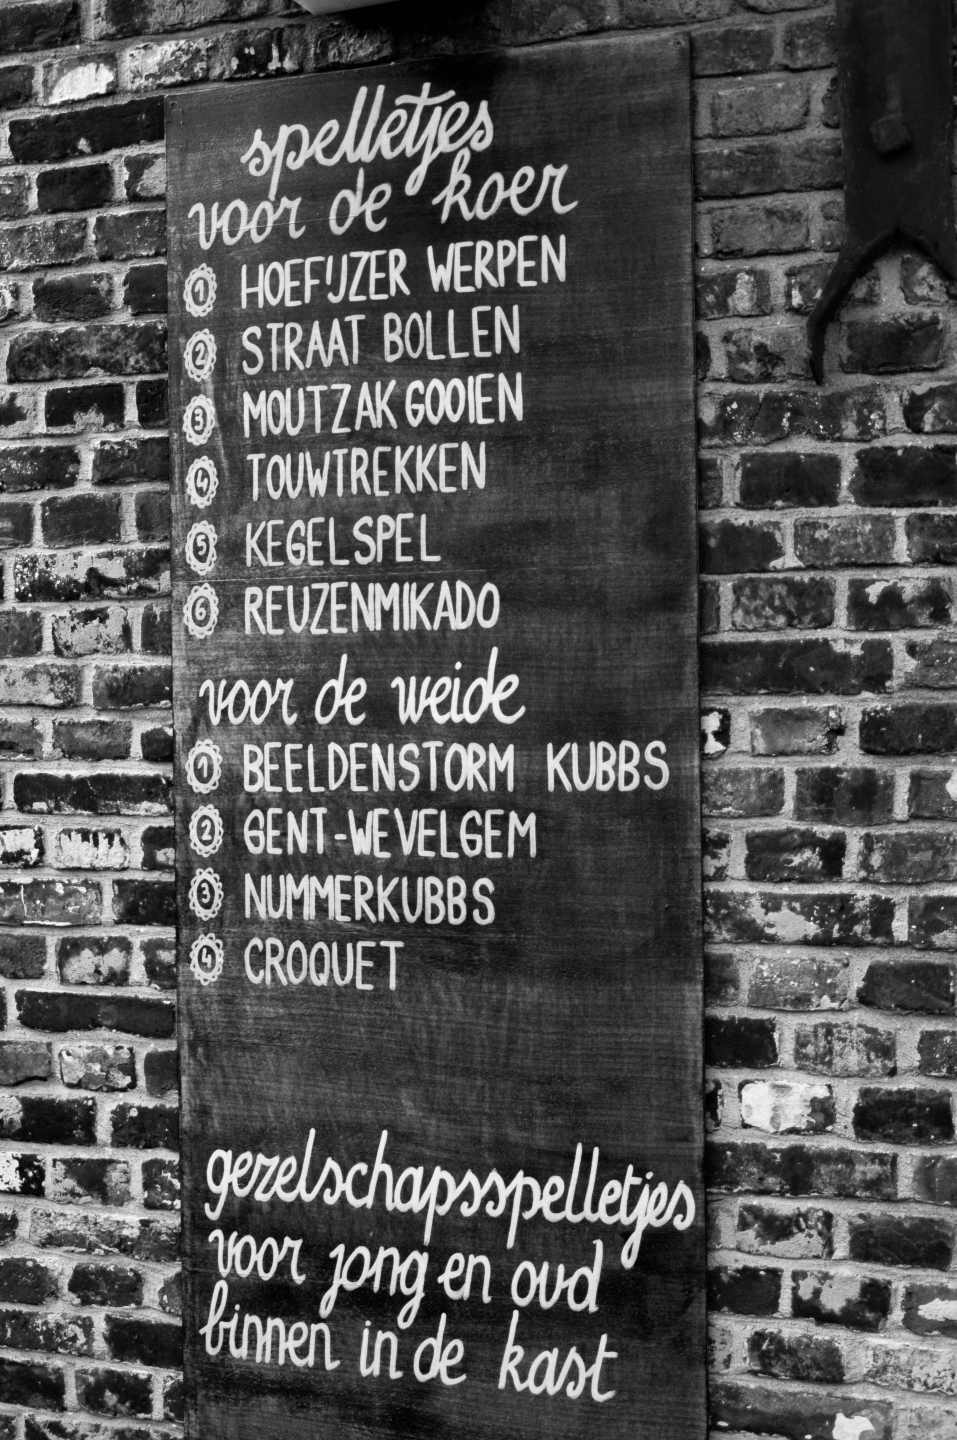 spelletjes
voor de koer
1 HOEFIJZER WERPEN
2 STRAAT BOLLEN
3 MOUTZAK GOOIEN
4 TOUWTREKKEN
5 KEGELSPEL
6 REUZENMIKADO
voor de weide
1 BEELDENSTORM KUBBS
2 GENT-WEVELGEM
3 NUMMERKUBBS
4 CROQUET
gezelschapsspelletjes
voor jong en oud
binnen in de kast